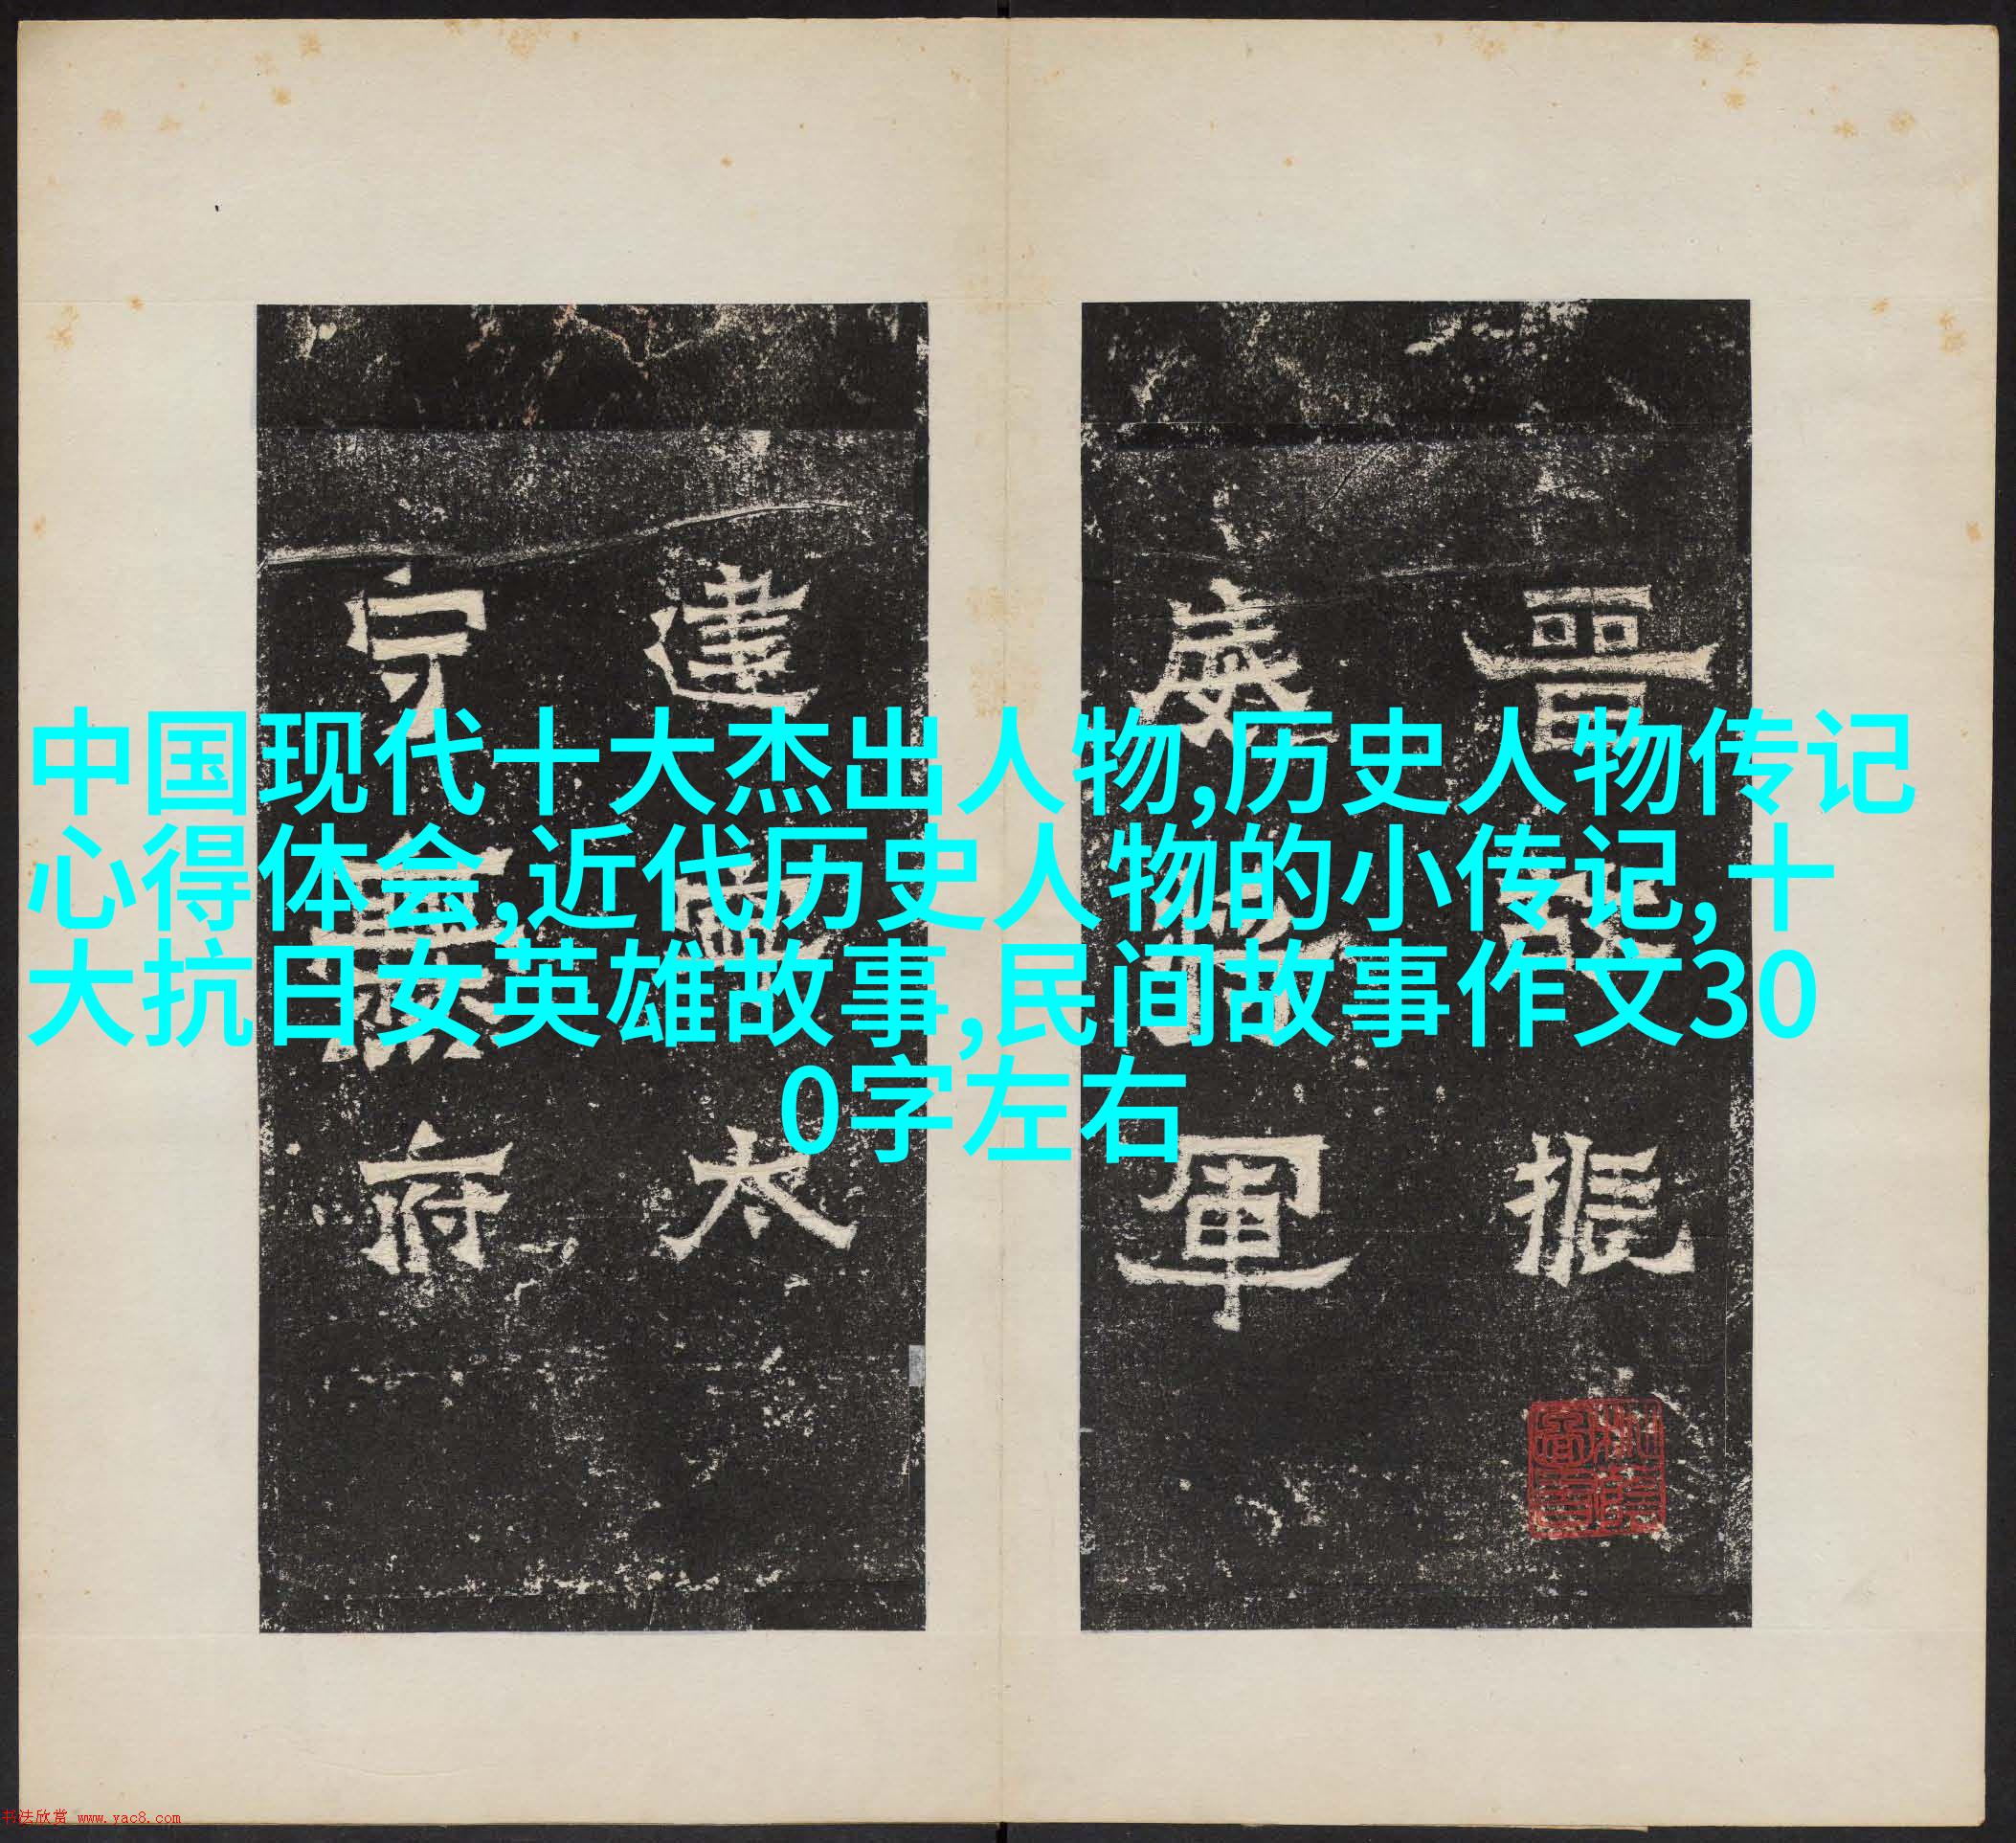 中国现代十大杰出人物,历史人物传记
心得体会,近代历史人物的小传记,十
大抗日女英雄故事,民间故事作文30
0字左右
晋
振
威
軍
建
太
守
府
书法欣赏 www.yac8.com